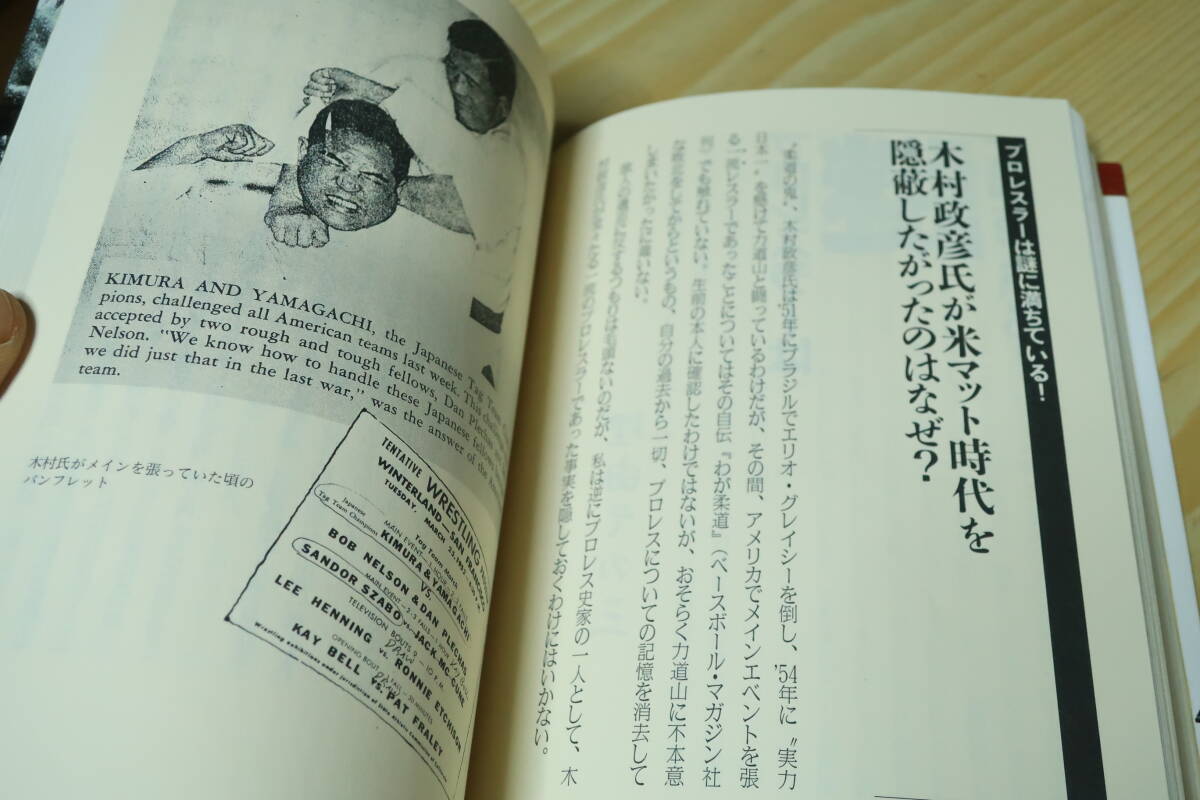 プロレスラーは謎に満ちている!
木村政彦氏が米マット時代を
隠蔽したがったのはなぜ?
〝柔道の鬼〟、木村政彦氏は'51年にブラジルでエリオ・グレイシーを倒し、'54年に〝実力
日本一〟を懸けて力道山と闘っているわけだが、その間、アメリカでメインエベントを張
る一流レスラーであったことについてはその自伝『わが柔道』(ベースボール・マガジン社
刊)でも触れていない。生前の本人に確認したわけではないが、おそらく力道山に不本意
な敗北を喫してからというもの、自分の過去から一切、プロレスについての記憶を消去して
しまいたかったに違いない。
故人の遺志に反するつもりは毛頭ないのだが、私は逆にプロレス史家の一人として、木
村政彦氏が一流のプロレスラーであった事実を隠しておくわけにはいかない。
KIMURA AND YAMAGACHI, the Japanese Tag Team
pions, challenged all American teams last week. This
accepted by two rough and tough fellows, Dan Plechas
Nelson. "We know how to handle these Japanese fellows
we did just that in the last war," was the answer of the
team.
木村氏がメインを張っていた頃の
パンフレット
TENTATIVE WRESTLING
WINTERLAND—SAN FRANCISCO
TUESDAY, MARCH 25, 1952
Tag Team Match
MAIN EVENT
Japanese
Tag Team Champions
KIMURA & YAMAGACHI
VS.
BOB NELSON & DAN PLECHAS
MAIN EVENT—2-3 FALLS—1 HOUR
SANDOR SZABO vs. JACK MC CUNE
TELEVISION BOUTS
DRAW
LEE HENNING vs. RONNIE ETCHISON
OPENING BOUT—1 FALL—30 MINUTES
KAY BELL vs. PAT FRALEY
Wrestling exhibitions under jurisdiction of State Athletic Commission of California